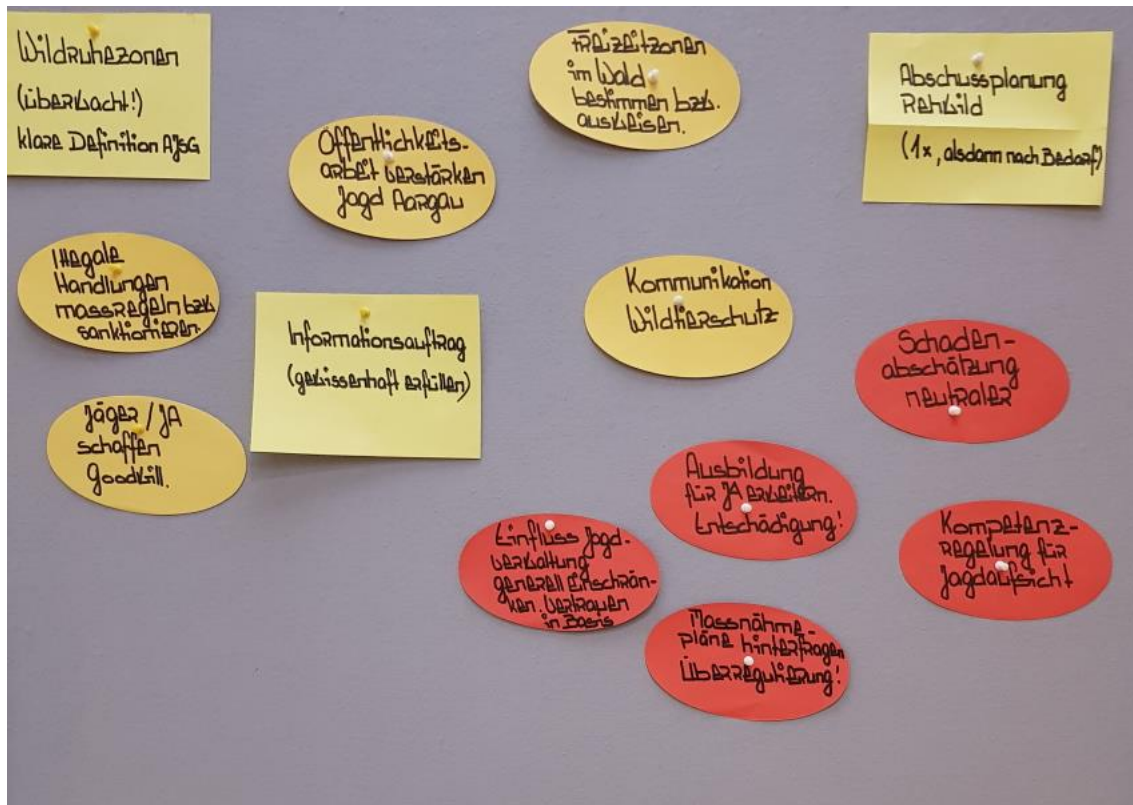 Wildruhezonen
(überwacht!)
klare Definition AJSG
Öffentlichkeits-
arbeit verstärken
Jagd Aargau
Freizeitzonen
im Wald
bestimmen bzw.
ausweisen.
Abschussplanung
Rehwild
(1x, alsdann nach Bedarf)
Illegale
Handlungen
massregeln bzw.
sanktionieren.
Informationsauftrag
(gewissenhaft erfüllen)
Kommunikation
Wildtierschutz
Schaden-
abschätzung
neutraler
Jäger / JA
schaffen
Goodwill.
Ausbildung
für JA erweitern.
Entschädigung!
Einfluss Jagd-
verwaltung
generell einschrän-
ken. Vertrauen
in Basis
Kompetenz-
regelung für
Jagdaufsicht
Massnahme-
pläne hinterfragen
Überregulierung!